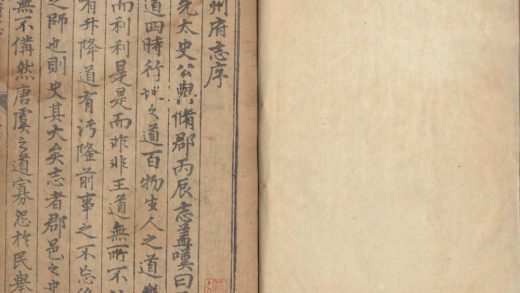 州府志序
先太史公輿脩郡丙辰志盖嘆曰
道四時行
之道百物生人之道
而利利是是而非非王道無所不
有升降道有汚隆前事之不忘
之師也則史其大矣志者郡邑之史
無不僯然唐虞之道寡怨於民舉